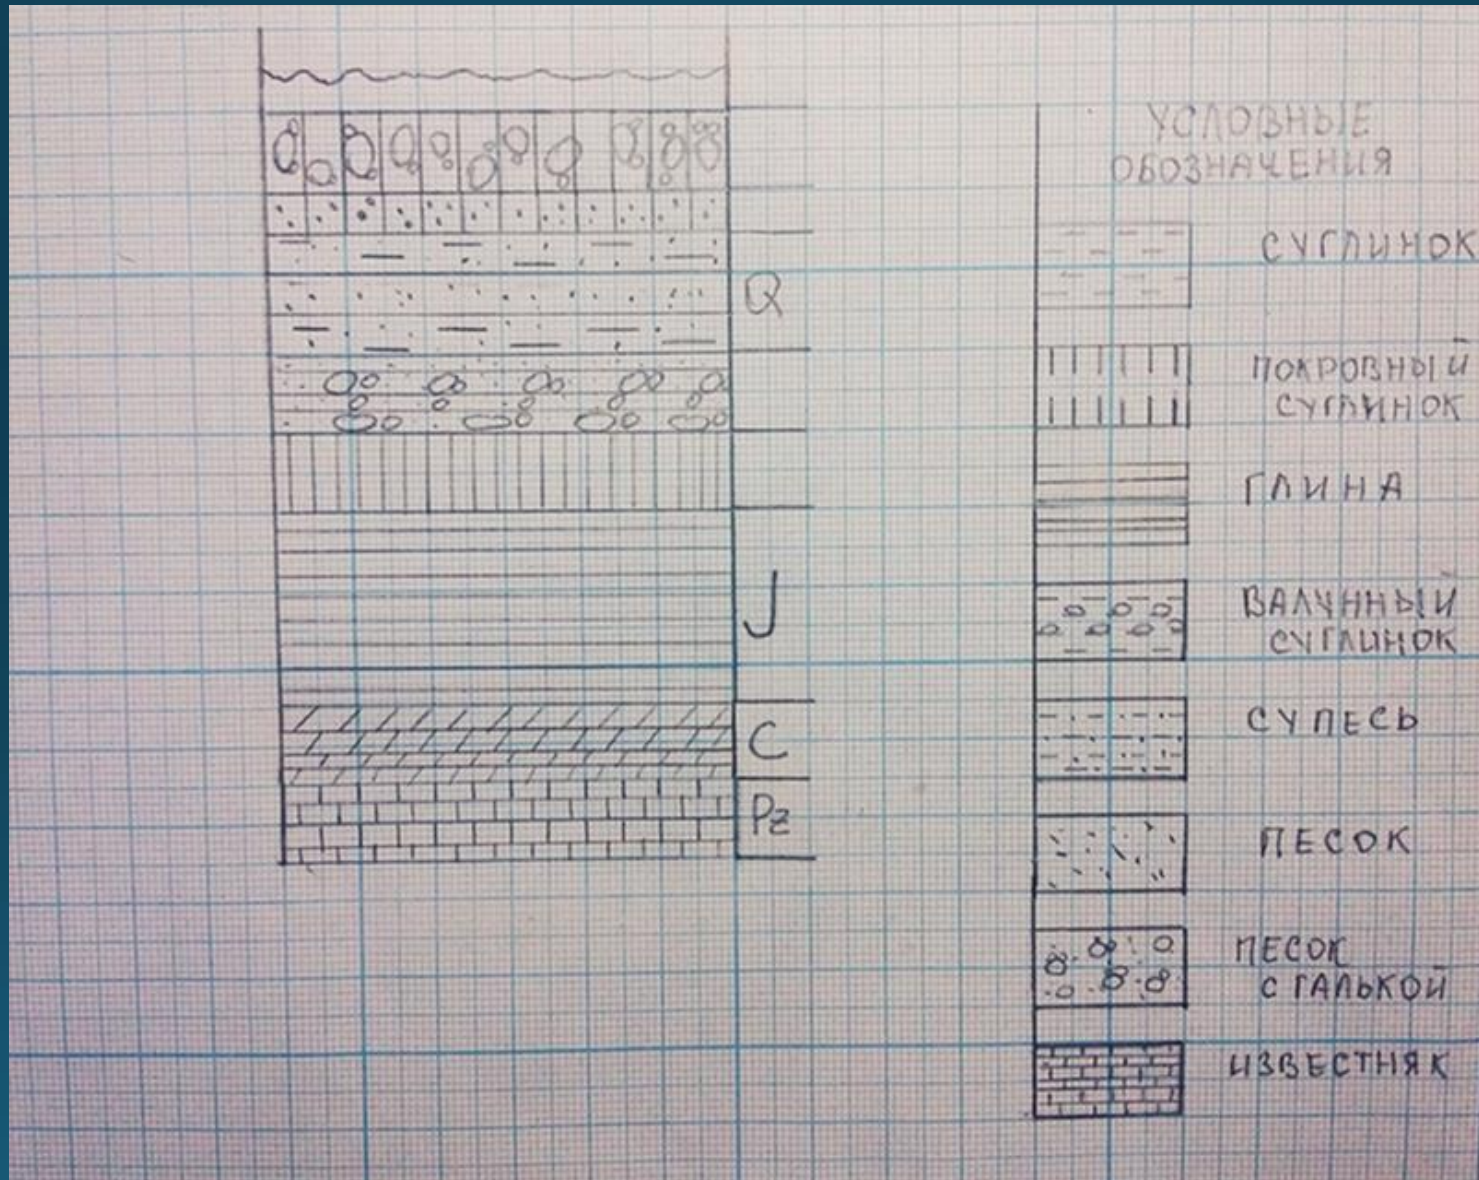 Q
J
C
Pz
УСЛОВНЫЕ
ОБОЗНАЧЕНИЯ
СУГЛИНОК
ПОКРОВНЫЙ
СУГЛИНОК
ГЛИНА
ВАЛУННЫЙ
СУГЛИНОК
СУПЕСЬ
ПЕСОК
ПЕСОК
С ГАЛЬКОЙ
ИЗВЕСТНЯК